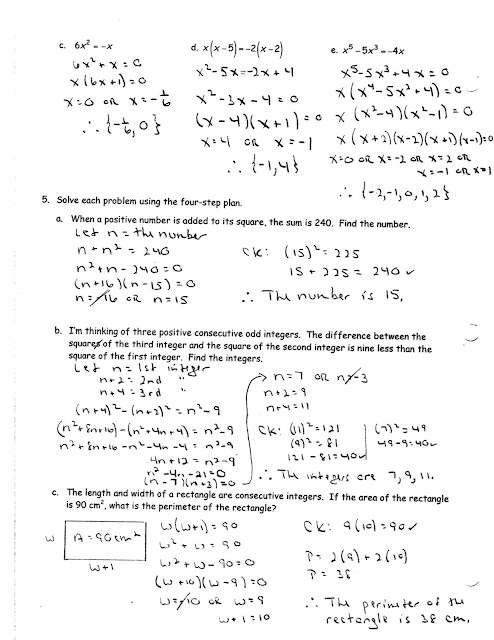 c. 6x² = -x
6x² + x = 0
x(6x+1) = 0
x = 0 OR x = -1/6
∴ {-1/6, 0}
d. x(x-5) = -2(x-2)
x² - 5x = -2x + 4
x² - 3x - 4 = 0
(x-4)(x+1) = 0
x = 4 OR x = -1
∴ {-1, 4}
e. x⁵ - 5x³ = -4x
x⁵ - 5x³ + 4x = 0
x(x⁴ - 5x² + 4) = 0
x(x²-4)(x²-1) = 0
x(x+2)(x-2)(x+1)(x-1)=0
x=0 OR x=-2 OR x=2 OR
x=-1 OR x=1
∴ {-2,-1,0,1,2}
5. Solve each problem using the four-step plan.
a. When a positive number is added to its square, the sum is 240. Find the number.
Let n = the number
n + n² = 240
n² + n - 240 = 0
(n+16)(n-15) = 0
n = -16 OR n = 15
CK: (15)² = 225
15 + 225 = 240 ✓
∴ The number is 15.
b. I'm thinking of three positive consecutive odd integers. The difference between the
squares of the third integer and the square of the second integer is nine less than the
square of the first integer. Find the integers.
Let n = 1st integer
n+2 = 2nd "
n+4 = 3rd "
(n+4)² - (n+2)² = n² - 9
(n²+8n+16) - (n²+4n+4) = n² - 9
n² + 8n + 16 - n² - 4n - 4 = n² - 9
4n + 12 = n² - 9
n² - 4n - 21 = 0
(n-7)(n+3) = 0
n = 7 OR n = -3
n+2 = 9
n+4 = 11
CK: (11)² = 121
(9)² = 81
121 - 81 = 40 ✓
(7)² = 49
49 - 9 = 40 ✓
∴ The integers are 7, 9, 11.
c. The length and width of a rectangle are consecutive integers. If the area of the rectangle
is 90 cm², what is the perimeter of the rectangle?
W
A = 90 cm²
W+1
W(W+1) = 90
W² + W = 90
W² + W - 90 = 0
(W+10)(W-9) = 0
W = -10 OR W = 9
W+1 = 10
CK: 9(10) = 90 ✓
P = 2(9) + 2(10)
P = 38
∴ The perimeter of the
rectangle is 38 cm.